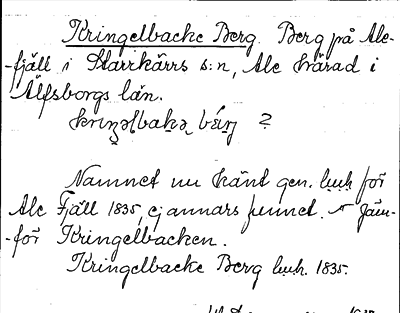 Kringelbacke Berg. Berg på Ale-
-fjäll i Starrkärrs s:n, Ale härad i
Älfsborgs län.
?
Namnet nu känt gen. luk för
Ale Fjäll 1835, ej annars funnet. Jäm-
-för Kringelbacken.
Kringelbacke Berg luk. 1835.